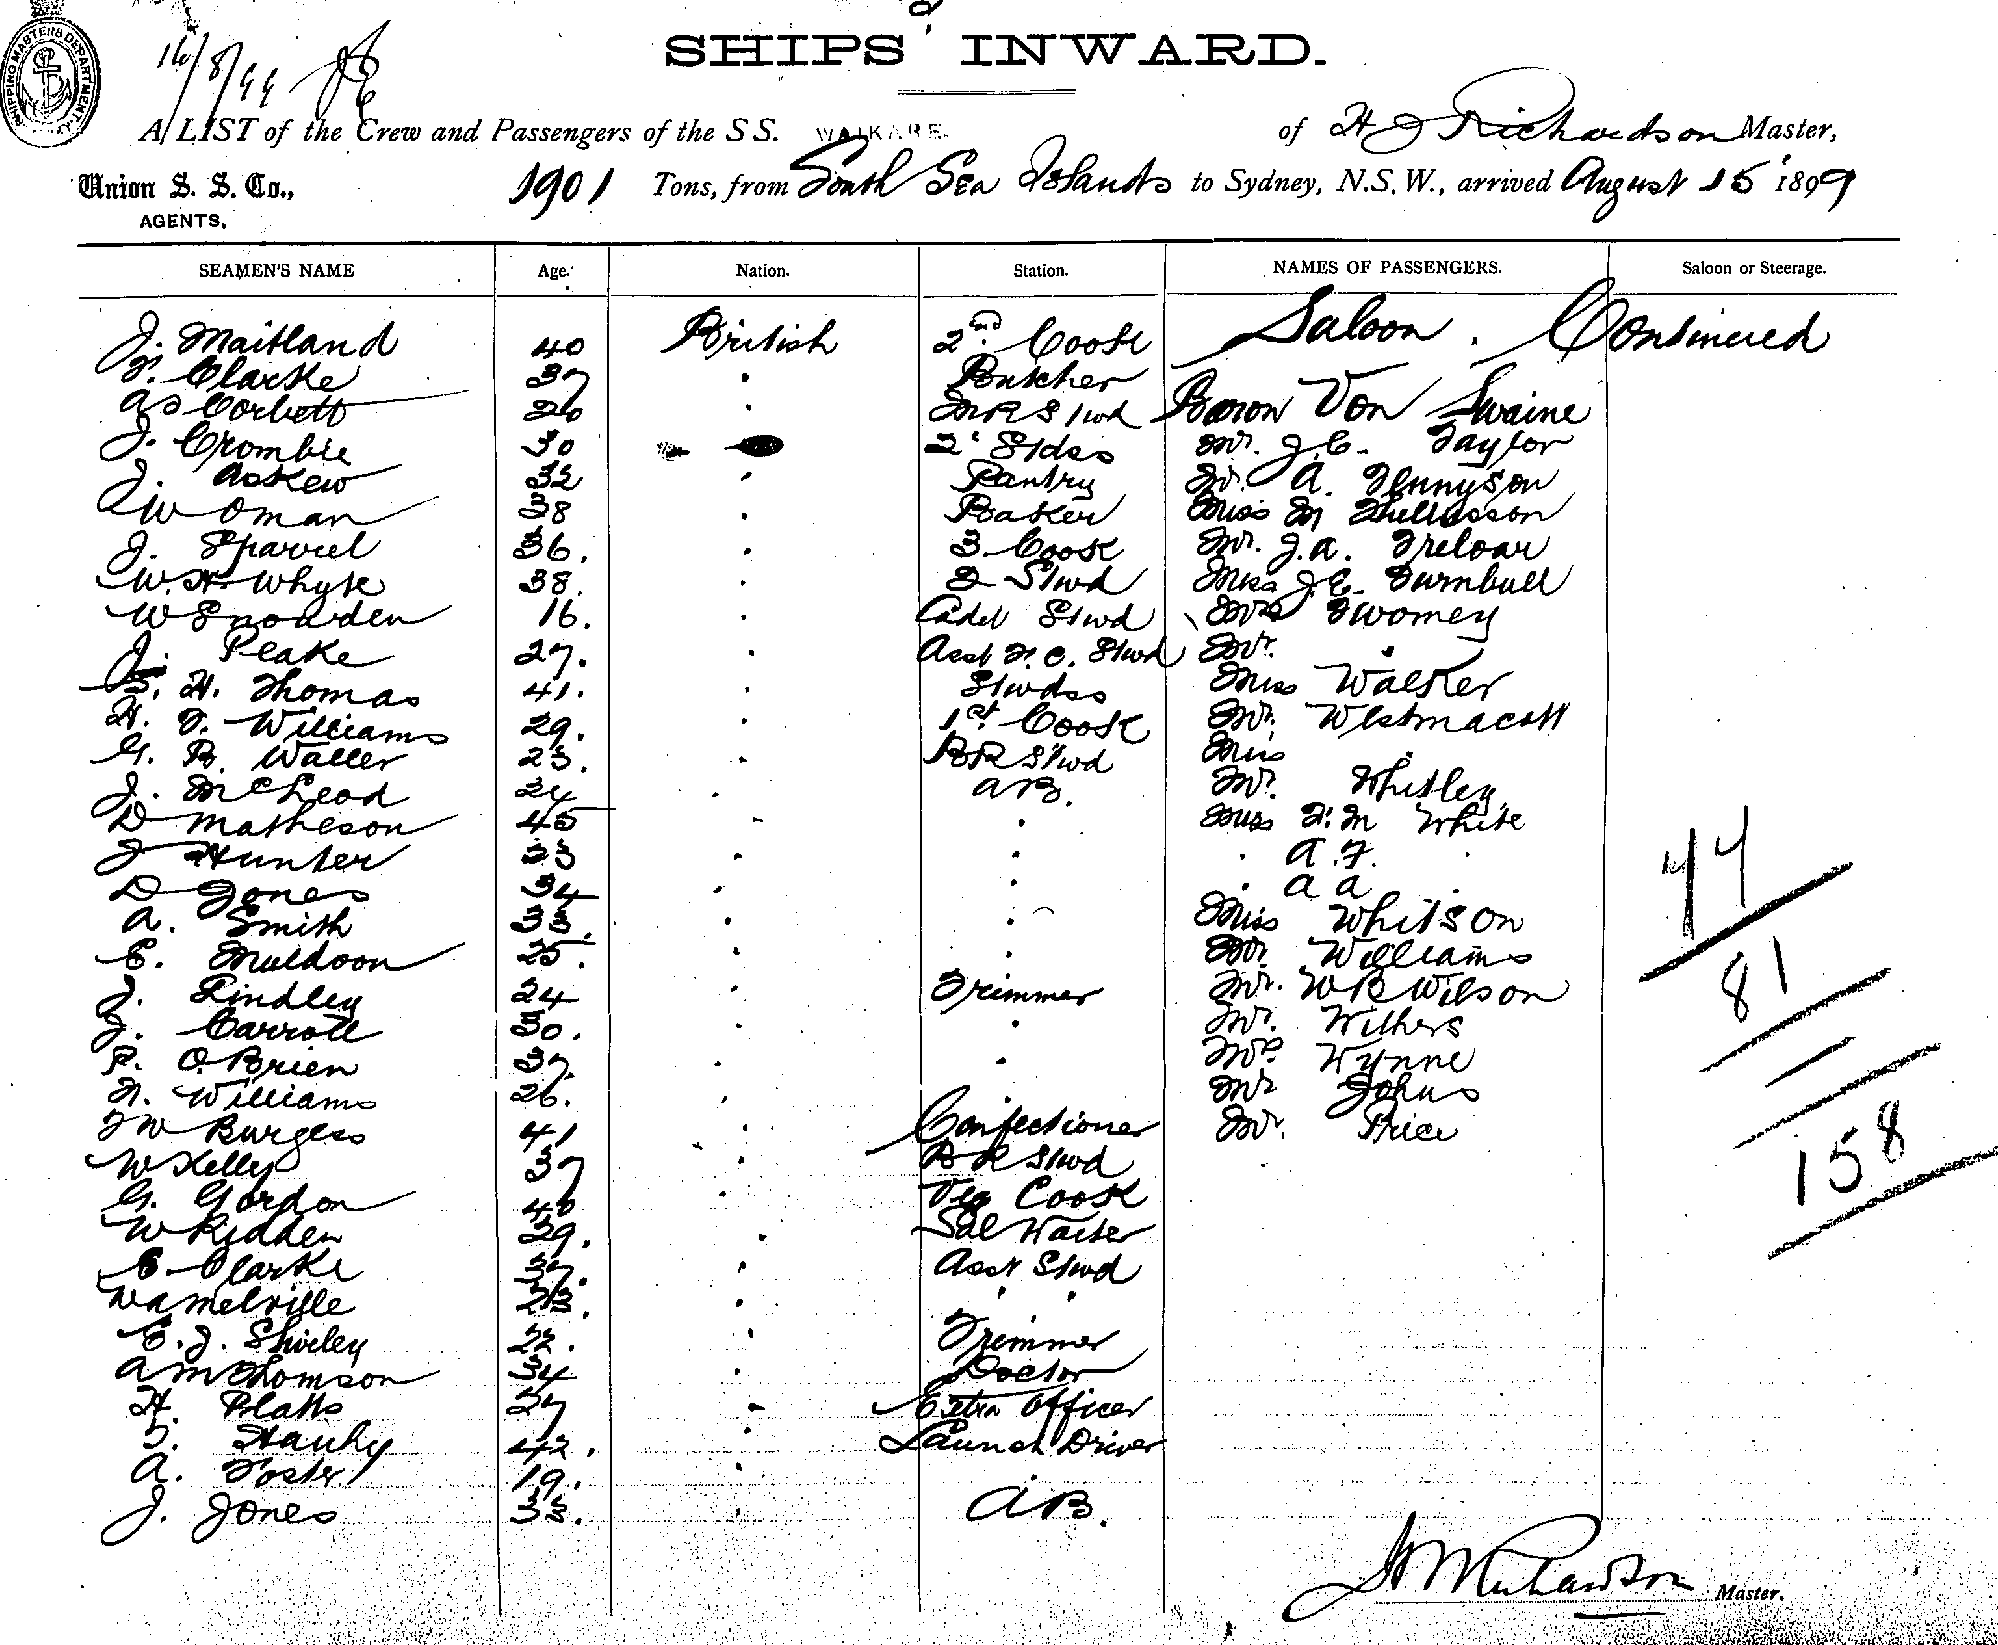 SHIPPING MASTERS DEPARTMENT
16/8/99
SHIPS' INWARD.
A LIST of the Crew and Passengers of the SS. WAIKARE. of H J Richardson Master,
Union S. S. Co., 1901 Tons, from South Sea Islands to Sydney, N.S.W., arrived August 15 1899
AGENTS.
SEAMEN'S NAME Age. Nation. Station. NAMES OF PASSENGERS. Saloon or Steerage.
J. Maitland 40 British 2nd Cook Saloon. Continued
Clarke 37 " Butcher
Corbett 26 " M R Stwd Baron Von Swaine
J. Crombie 30 " 2' Stdss Mr. J.C. Taylor
J. Askew 32 " Pantry Mr. A. Tennyson
W Oman 38 " Baker Miss M Thellusson
J. Sparvel 36. " 3 Cook Mr. J.A. Treloar
W.H. Whyte 38. " 2 Stwd Miss J.E. Turnbull
W Snowden 16. " Cadet Stwd Mrs Twomey
J. Peake 27. " Asst F. C. Stwd Mr. "
S. H. Thomas 41. " Stwdss Miss Walker
H. T. Williams 29. " 1st Cook Mr. Westmacott
G. B. Waller 23. " BR Stwd Miss "
J. McLeod 24 " AB. Mr. Whitley
D Matheson 45 " " Miss F. M White
J Hunter 33 " " " A.F. "
D Jones 34 " " " A A "
A. Smith 33. " " Miss Whitson
C. Muldoon 25. " " Mr. Williams
J. Lindley 24 " Trimmer Mr. W B Wilson
J. Carroll 30. " " Mr. Withers
P. O'Brien 37. " " Mrs Wynne
F. Williams 26. " " Mr Johns
F W Burgess 41 " Confectioner Mr. Price
W Kelly 37 " B R Stwd
G. Gordon 40 " Veg Cook
W Ridden 29. " Sal Waiter
C. Clarke 37. " Asst Stwd
W A Melville 23. " " "
E. J. Shirley 22. " Trimmer
A M Thomson 34 " Doctor
H. Platts 27 " Extra Officer
42. " Launch Driver
A. Foster 19. " "
J. Jones 33. " AB.
44
81
158
Richardson Master.